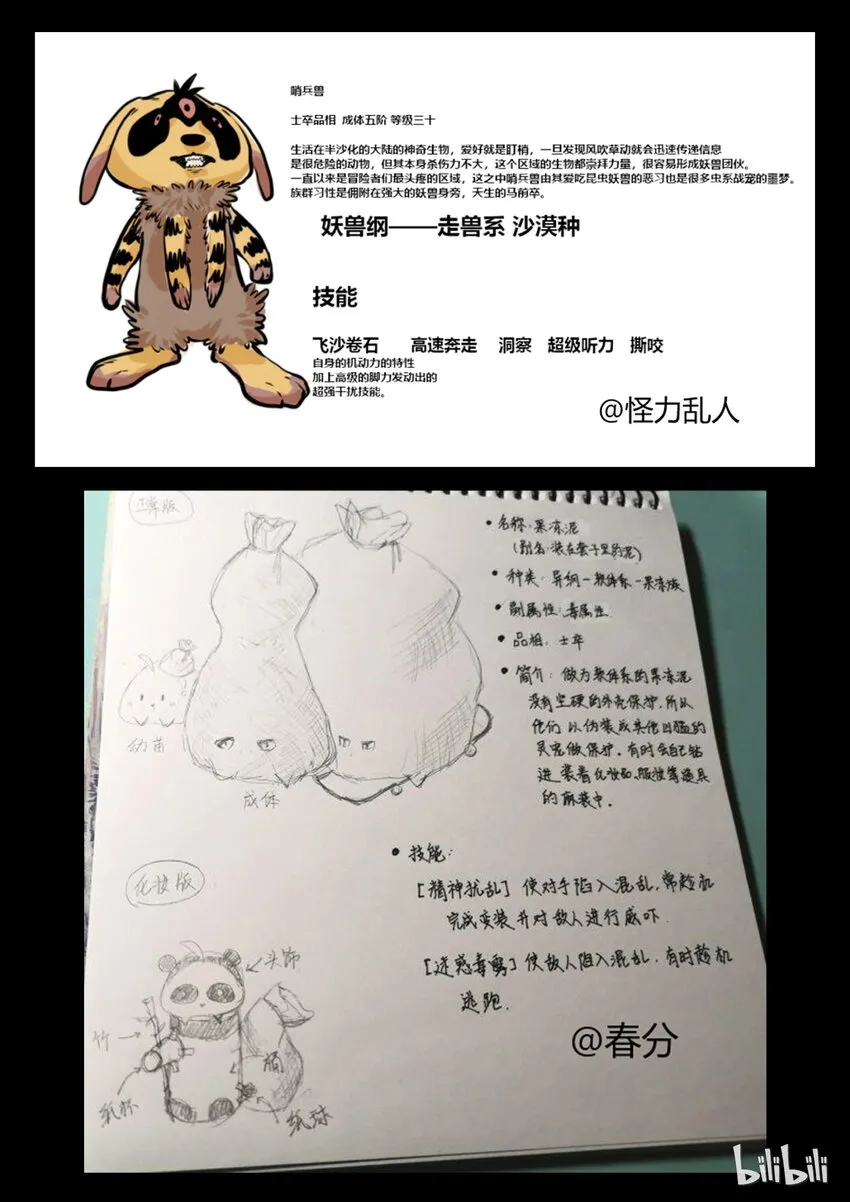 哨兵兽
士卒品相 成体五阶 等级三十
生活在半沙化的大陆的神奇生物，爱好就是盯梢，一旦发现风吹草动就会迅速传递信息
是很危险的动物，但其本身杀伤力不大，这个区域的生物都崇拜力量，很容易形成妖兽团伙。
一直以来是冒险者们最头疼的区域，这之中哨兵兽由其爱吃昆虫妖兽的恶习也是很多虫系战宠的噩梦。
族群习性是佣附在强大的妖兽身旁，天生的马前卒。
妖兽纲——走兽系 沙漠种
技能
飞沙卷石 高速奔走 洞察 超级听力 撕咬
自身的机动力的特性
加上高级的脚力发动出的
超强干扰技能。
@怪力乱人
• 名称：果冻泥
（别名：装在套子里的泥）
• 种类：异纲－软体系－果冻族
• 副属性：毒属性
• 品相：士卒
• 简介：做为软体系的果冻泥
没有坚硬的外壳保护，所以
他们以伪装成其他凶猛的
灵宠做保护。有时会自己钻
进装着化妆品、服装等道具
的麻装中。
幼苗
成体
• 技能：
化妆版
[精神扰乱] 使对手陷入混乱，常趁机
完成变装并对敌人进行威吓.
[迷惑毒雾] 使敌人陷入混乱，有时趁机
逃跑.
头饰
竹
纸杯
纸球
@春分
bilibili